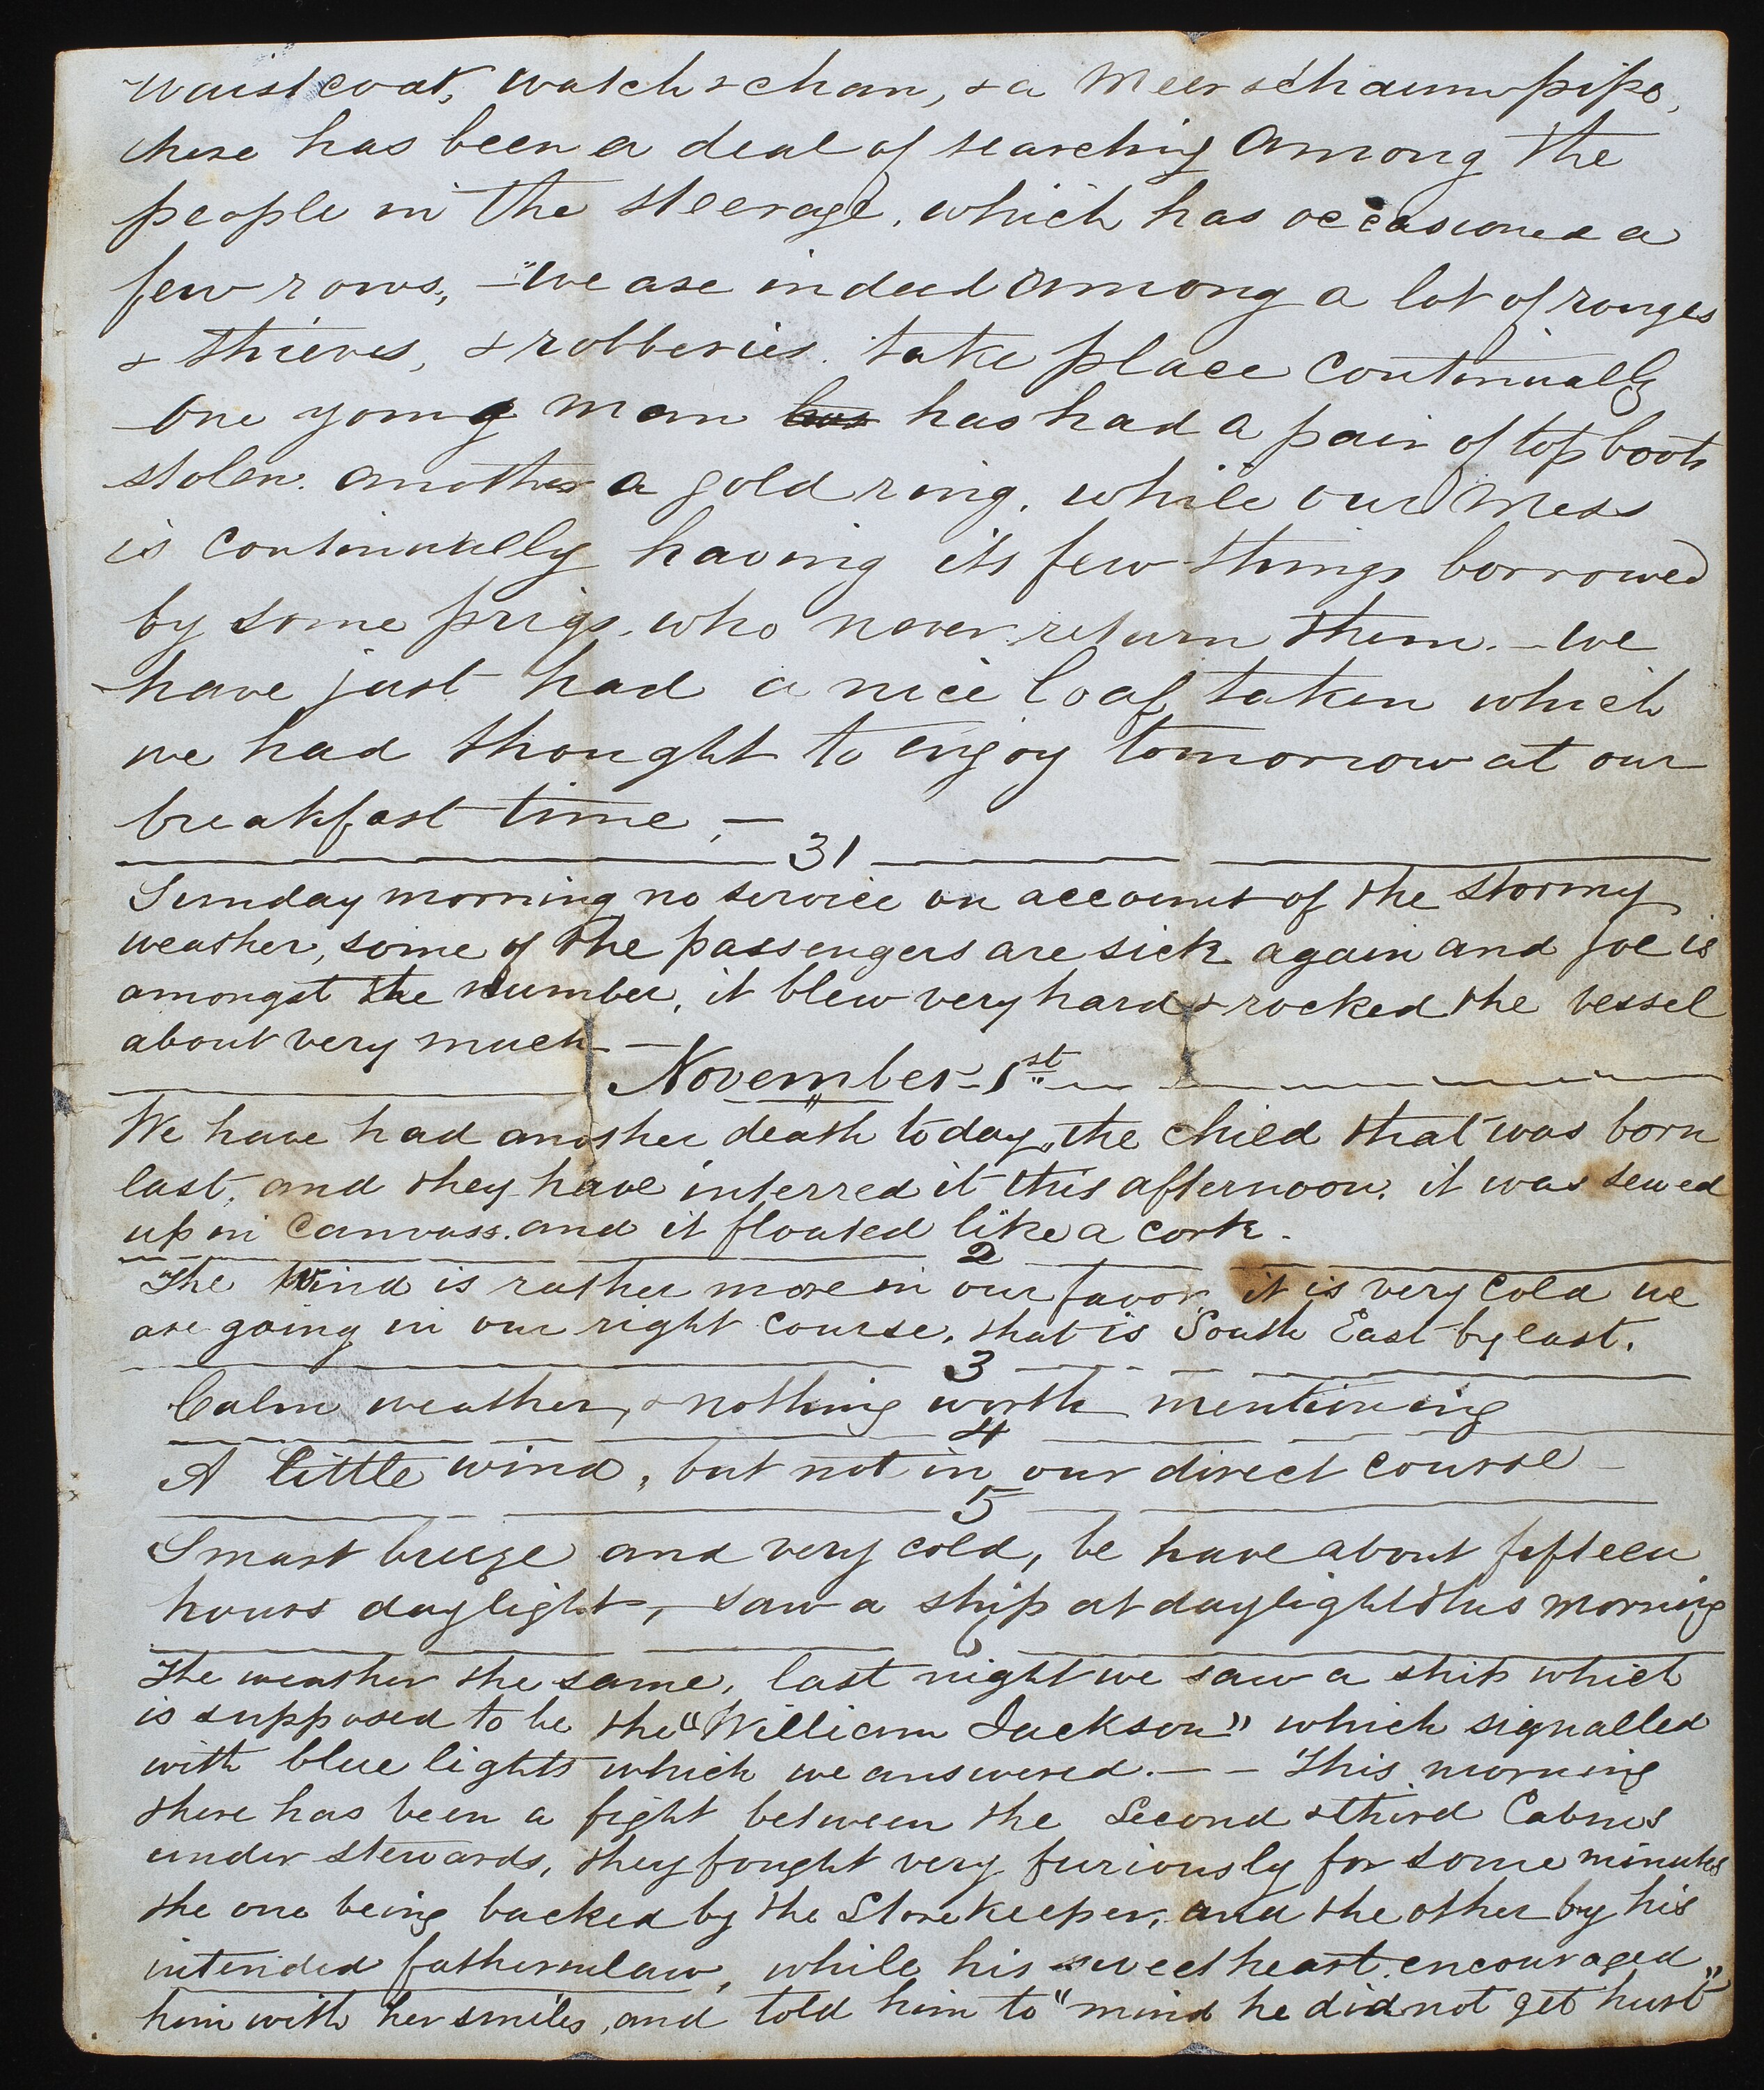 waistcoat, watch & chan, & a Meerschaum pipe,
there has been a deal of searching among the
people in the steerage, which has occasioned a
few rows, – we are indeed among a lot of rouges
& thieves, & robberies. take place continually
one young man has has had a pair of top boots
stolen. another a gold ring, while our Mess
is continually having its few things borrowed
by some prigs, who never return them. – we
have just had a nice loaf taken which
we had thought to enjoy tomorrow at our
breakfast time, –
31
Sunday morning no service on account of the stormy
weather, some of the passengers are sick again and Joe is
amongst the number, it blew very hard & rocked the vessel
about very much –
November 1st
We have had another death today, the child that was born
last, and they have interred it this afternoon. it was sewed
up in Canvass. and it floated like a cork.
2
The Wind is rather more in our favor it is very cold we
are going in our right course, that is South East by east.
3
Calm weather, & nothing worth mentioning
4
A little wind, but not in our direct course –
5
Smart breeze and very cold, be have about fifteen
hours daylight, – saw a ship at daylight this morning
6
The weather the same, last night we saw a ship which
is supposed to be the "William Jackson" which signalled
with blue lights which we answered. – – This morning
there has been a fight between the Second & third Cabins
under stewards, they fought very furiously for some minutes
the one being backed by the Storekeeper, and the other by his
intended fatherinlaw, while his sweetheart encouraged
him with her smiles, and told him to "mind he did not get hurt"